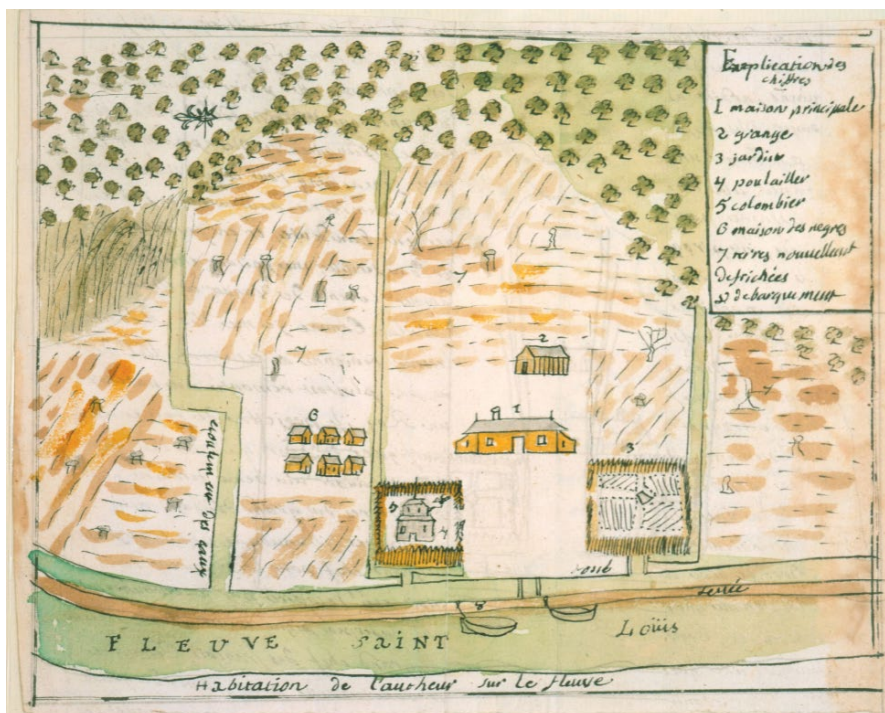 Explication des
chiffres
1 maison principale
2 grange
3 jardin
4 poulailler
5 colombier
6 maison des negres
7 terres nouvellement
defrichées
8 debarquement
7
7
7
2
1
6
3
5
4
des eaux
fossé
levée
8
FLEUVE SAINT Loüis
Habitation de l'autheur sur le fleuve